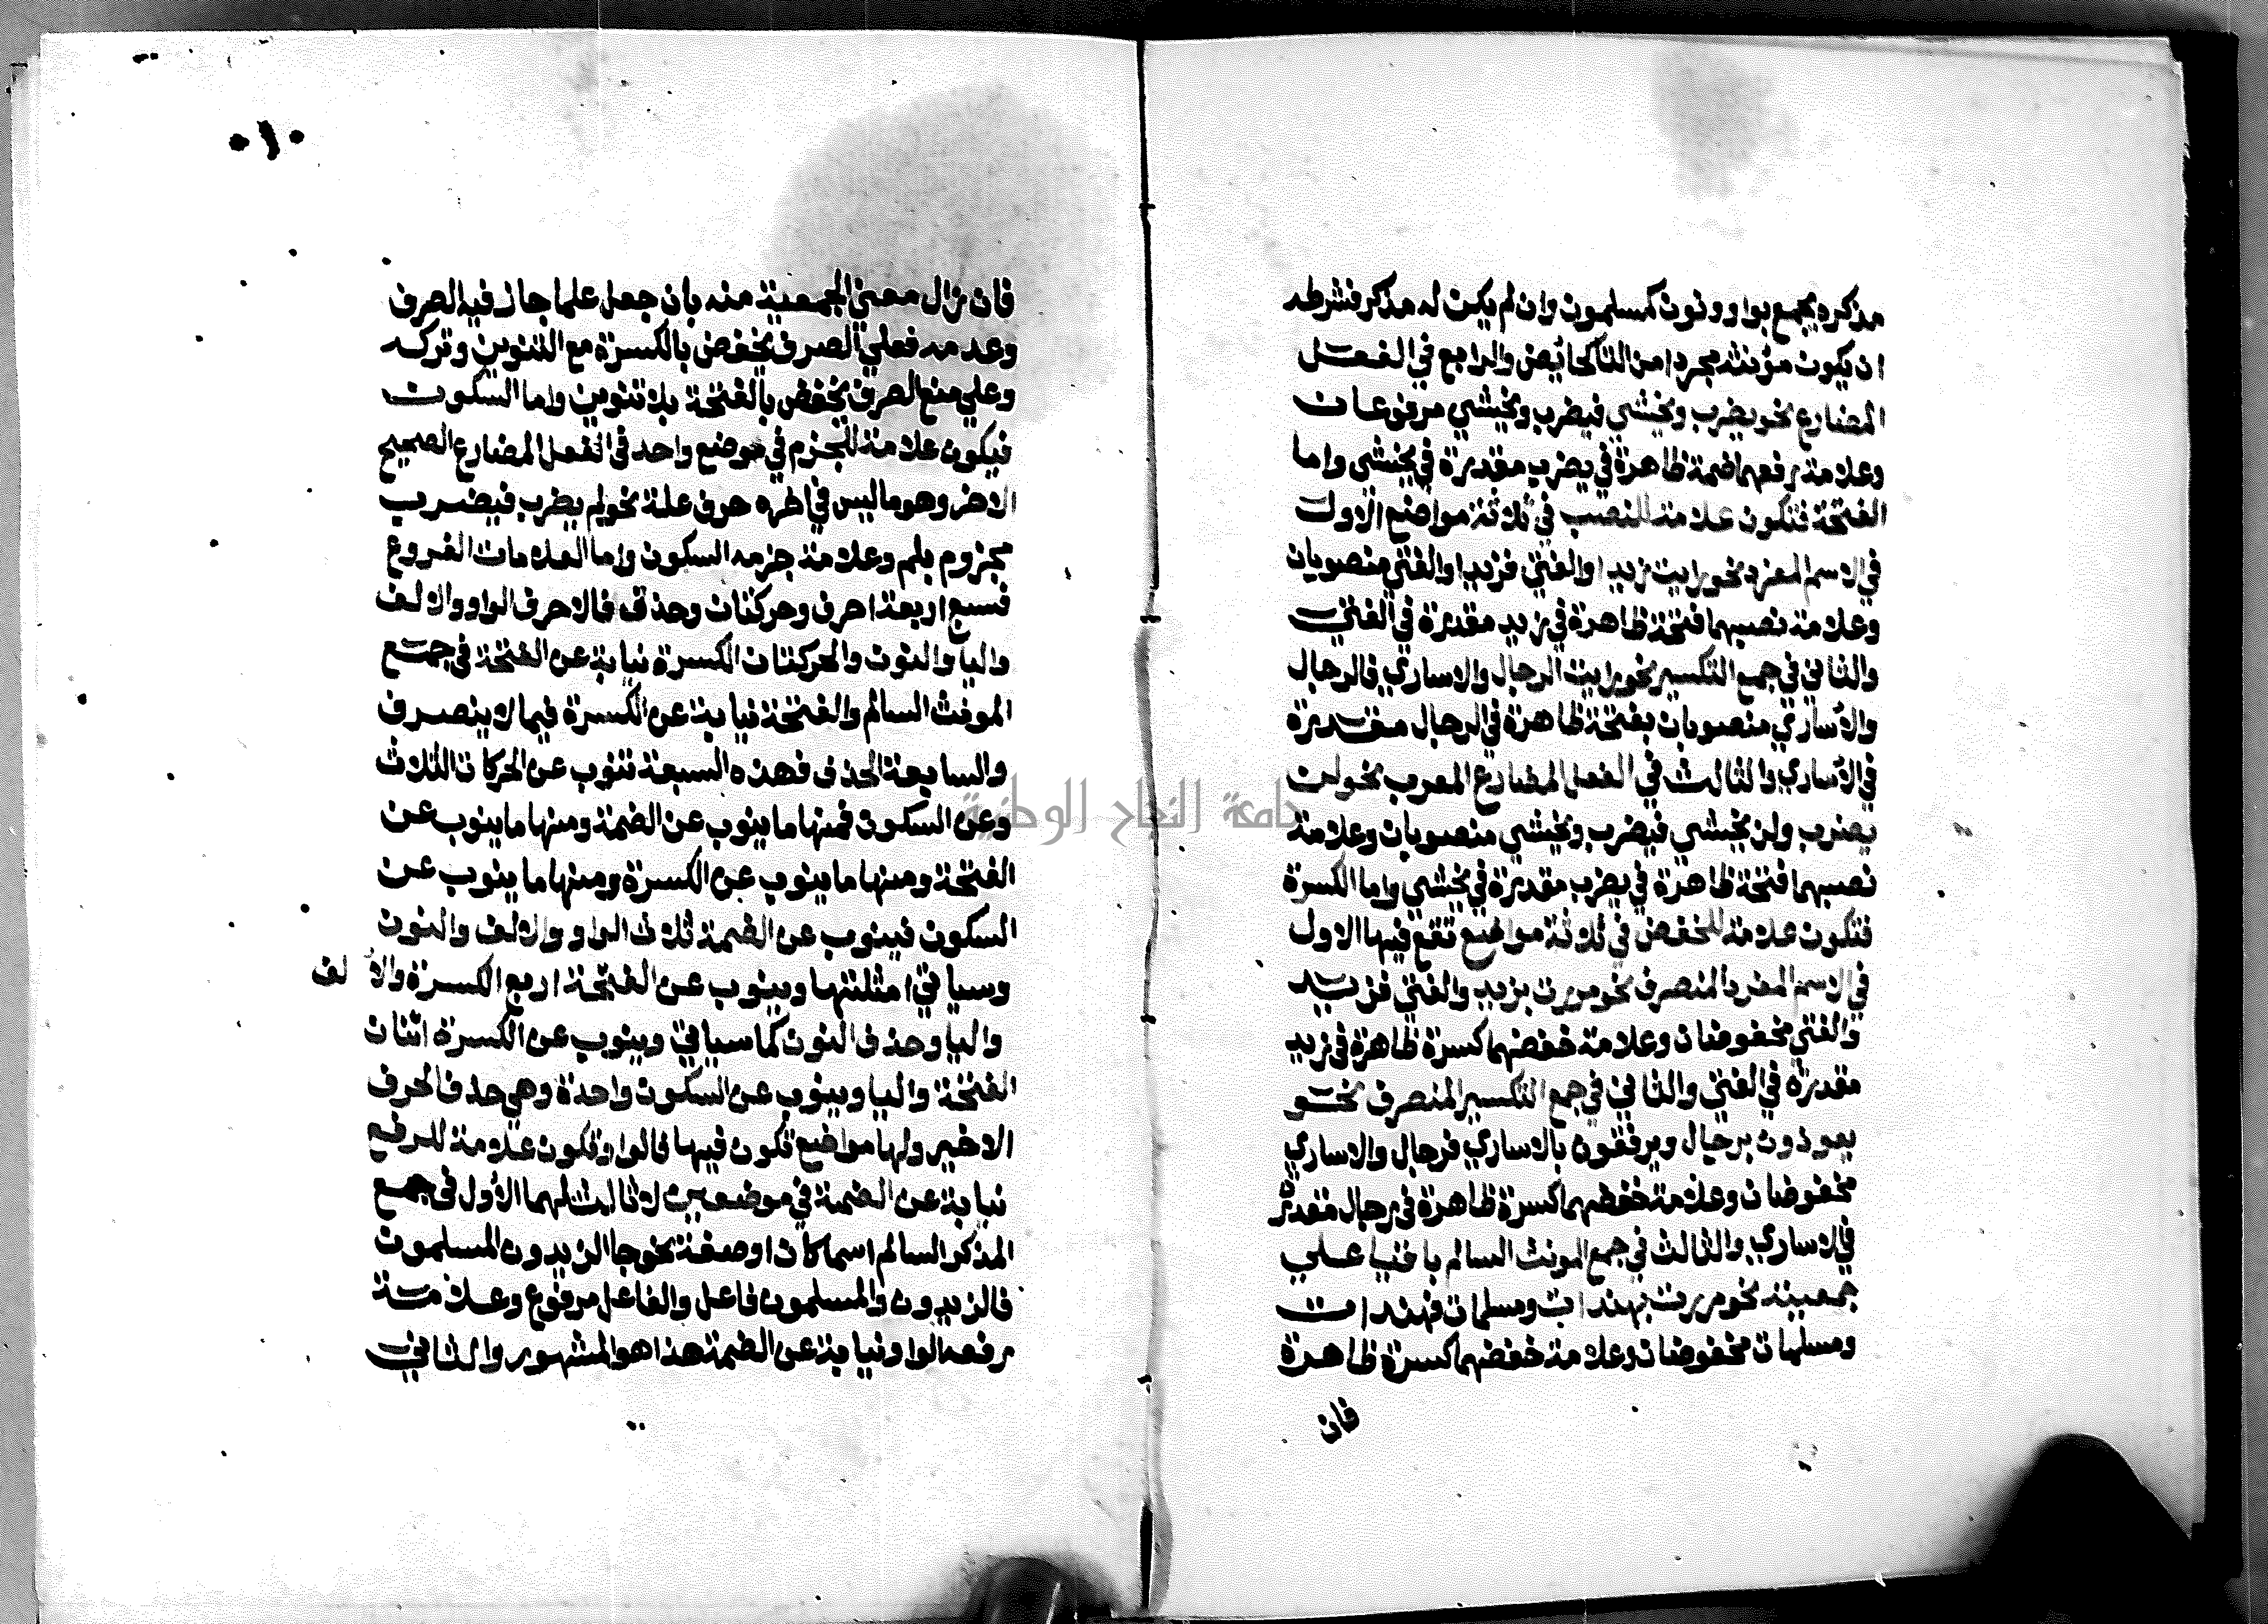 مذكره يجمع بواو ونون كمسلمون وان لم يكن له مذكر فشرطه
ان يكون مؤنثه مجردا من التا كحائض والرابع في الفعل
المضارع نحو يضرب ويخشى فيضرب ويخشي مرفوعان
وعلامة رفعهما ضمة ظاهرة في يضرب مقدرة في يخشى واما
الفتحة فتكون علامة للنصب في ثلاثة مواضع الاول
في الاسم المفرد نحو رايت زيدا والفتي فزيدا والفتي منصوبان
وعلامة نصبهما فتحة ظاهرة في زيد مقدرة في الفتي
والثاني في جمع التكسير نحو رايت الرجال والاساري فالرجال
والأساري منصوبان بفتحة ظاهرة في الرجال مقدرة
في الأساري والثالث في الفعل المضارع المعرب نحو لن
يضرب ولن يخشي فيضرب ويخشي منصوبان وعلامة
نصبهما فتحة ظاهرة في يضرب مقدرة في يخشي واما الكسرة
فتكون علامة للخفض في ثلاثة مواضع تقع فيها الاول
في الاسم المفرد المنصرف نحو مررت بزيد والفتي فزيد
والفتي مخفوضان وعلامة خفضهما كسرة ظاهرة في زيد
مقدرة في الفتي والثاني في جمع التكسير المنصرف نحو
يعوذون برجال ويرفقون بالاساري فرجال والاساري
مخفوضان وعلامة خفظهما كسرة ظاهرة في رجال مقدرة
في الاساري والثالث في جمع المونث السالم باقيا علي
جمعيته نحو مررت بهندات ومسلمات فهندات
ومسلمات مخفوضان وعلامة خفضهما كسرة ظاهرة
فان
١٠
فان زال معني الجمعية منه بان جعل علما جاز فيه الصرف
وعدمه فعلي الصرف يخفض بالكسرة مع التنوين وتركه
وعلي منع الصرف يخفض بالفتحة بلا تنوين واما السكون
فيكون علامة للجزم في موضع واحد في الفعل المضارع الصحيح
الاخر وهو ما ليس في اخره حرف علة نحو لم يضرب فيضرب
مجزوم بلم وعلامة جزمه السكون واما العلامات الفروع
فسبع اربعة احرف وحركتان وحذف فالاحرف الواو والالف
واليا والنون والحركتان الكسرة نيابة عن الفتحة في جمع
المونث السالم والفتحة نيابة عن الكسرة فيما لا ينصرف
والسابعة الحذف فهذه السبعة تنوب عن الحركات الثلاث
وعن السكون فمنها ما ينوب عن الضمة ومنها ما ينوب عن
الفتحة ومنها ما ينوب عن الكسرة ومنها ما ينوب عن
السكون فينوب عن الضمة ثلاث الواو والالف والنون
وسياتي امثلتها وينوب عن الفتحة اربع الكسرة والالف
واليا وحذف النون كما سياتي وينوب عن الكسرة اثنان
الفتحة واليا وينوب عن السكون واحدة وهي حذف الحرف
الاخير ولها مواضع تكون فيها فالواو تكون علامة للرفع
نيابة عن الضمة في موضعين لا ثالث لهما الأول في جمع
المذكر السالم اسما كان او صفة نحو جا الزيدون المسلمون
فالزيدون والمسلمون فاعل والفاعل مرفوع وعلامة
رفعه الواو نيابة عن الضمة هذا هو المشهور والثاني
جامعة النجاح الوطنية